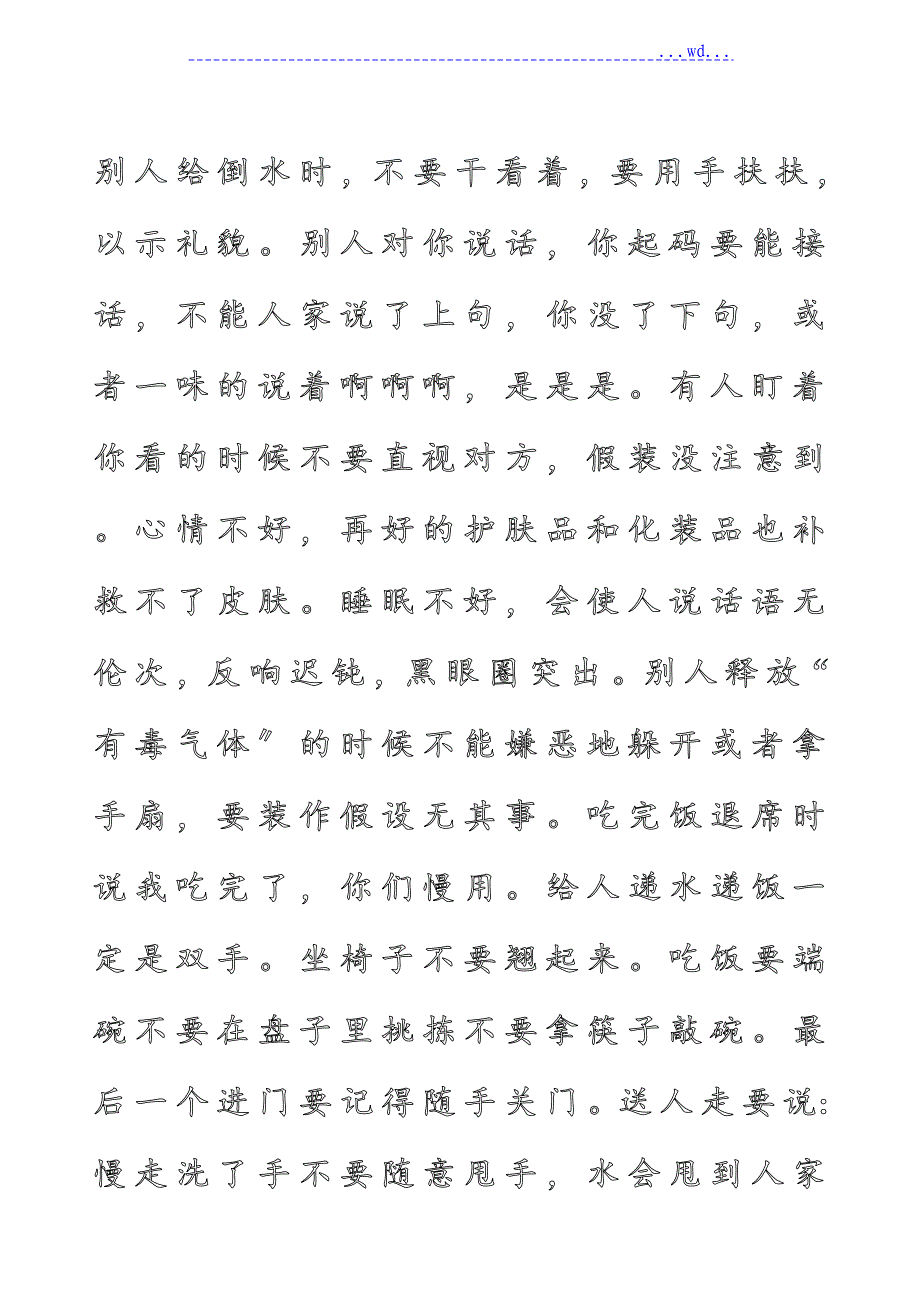 ...wd...
别人给倒水时，不要干看着，要用手扶扶，
以示礼貌。别人对你说话，你起码要能接
话，不能人家说了上句，你没了下句，或
者一味的说着啊啊啊，是是是。有人盯着
你看的时候不要直视对方，假装没注意到
。心情不好，再好的护肤品和化装品也补
救不了皮肤。睡眠不好，会使人说话语无
伦次，反响迟钝，黑眼圈突出。别人释放“
有毒气体”的时候不能嫌恶地躲开或者拿
手扇，要装作假设无其事。吃完饭退席时
说我吃完了，你们慢用。给人递水递饭一
定是双手。坐椅子不要翘起来。吃饭要端
碗不要在盘子里挑拣不要拿筷子敲碗。最
后一个进门要记得随手关门。送人走要说：
慢走洗了手不要随意甩手，水会甩到人家